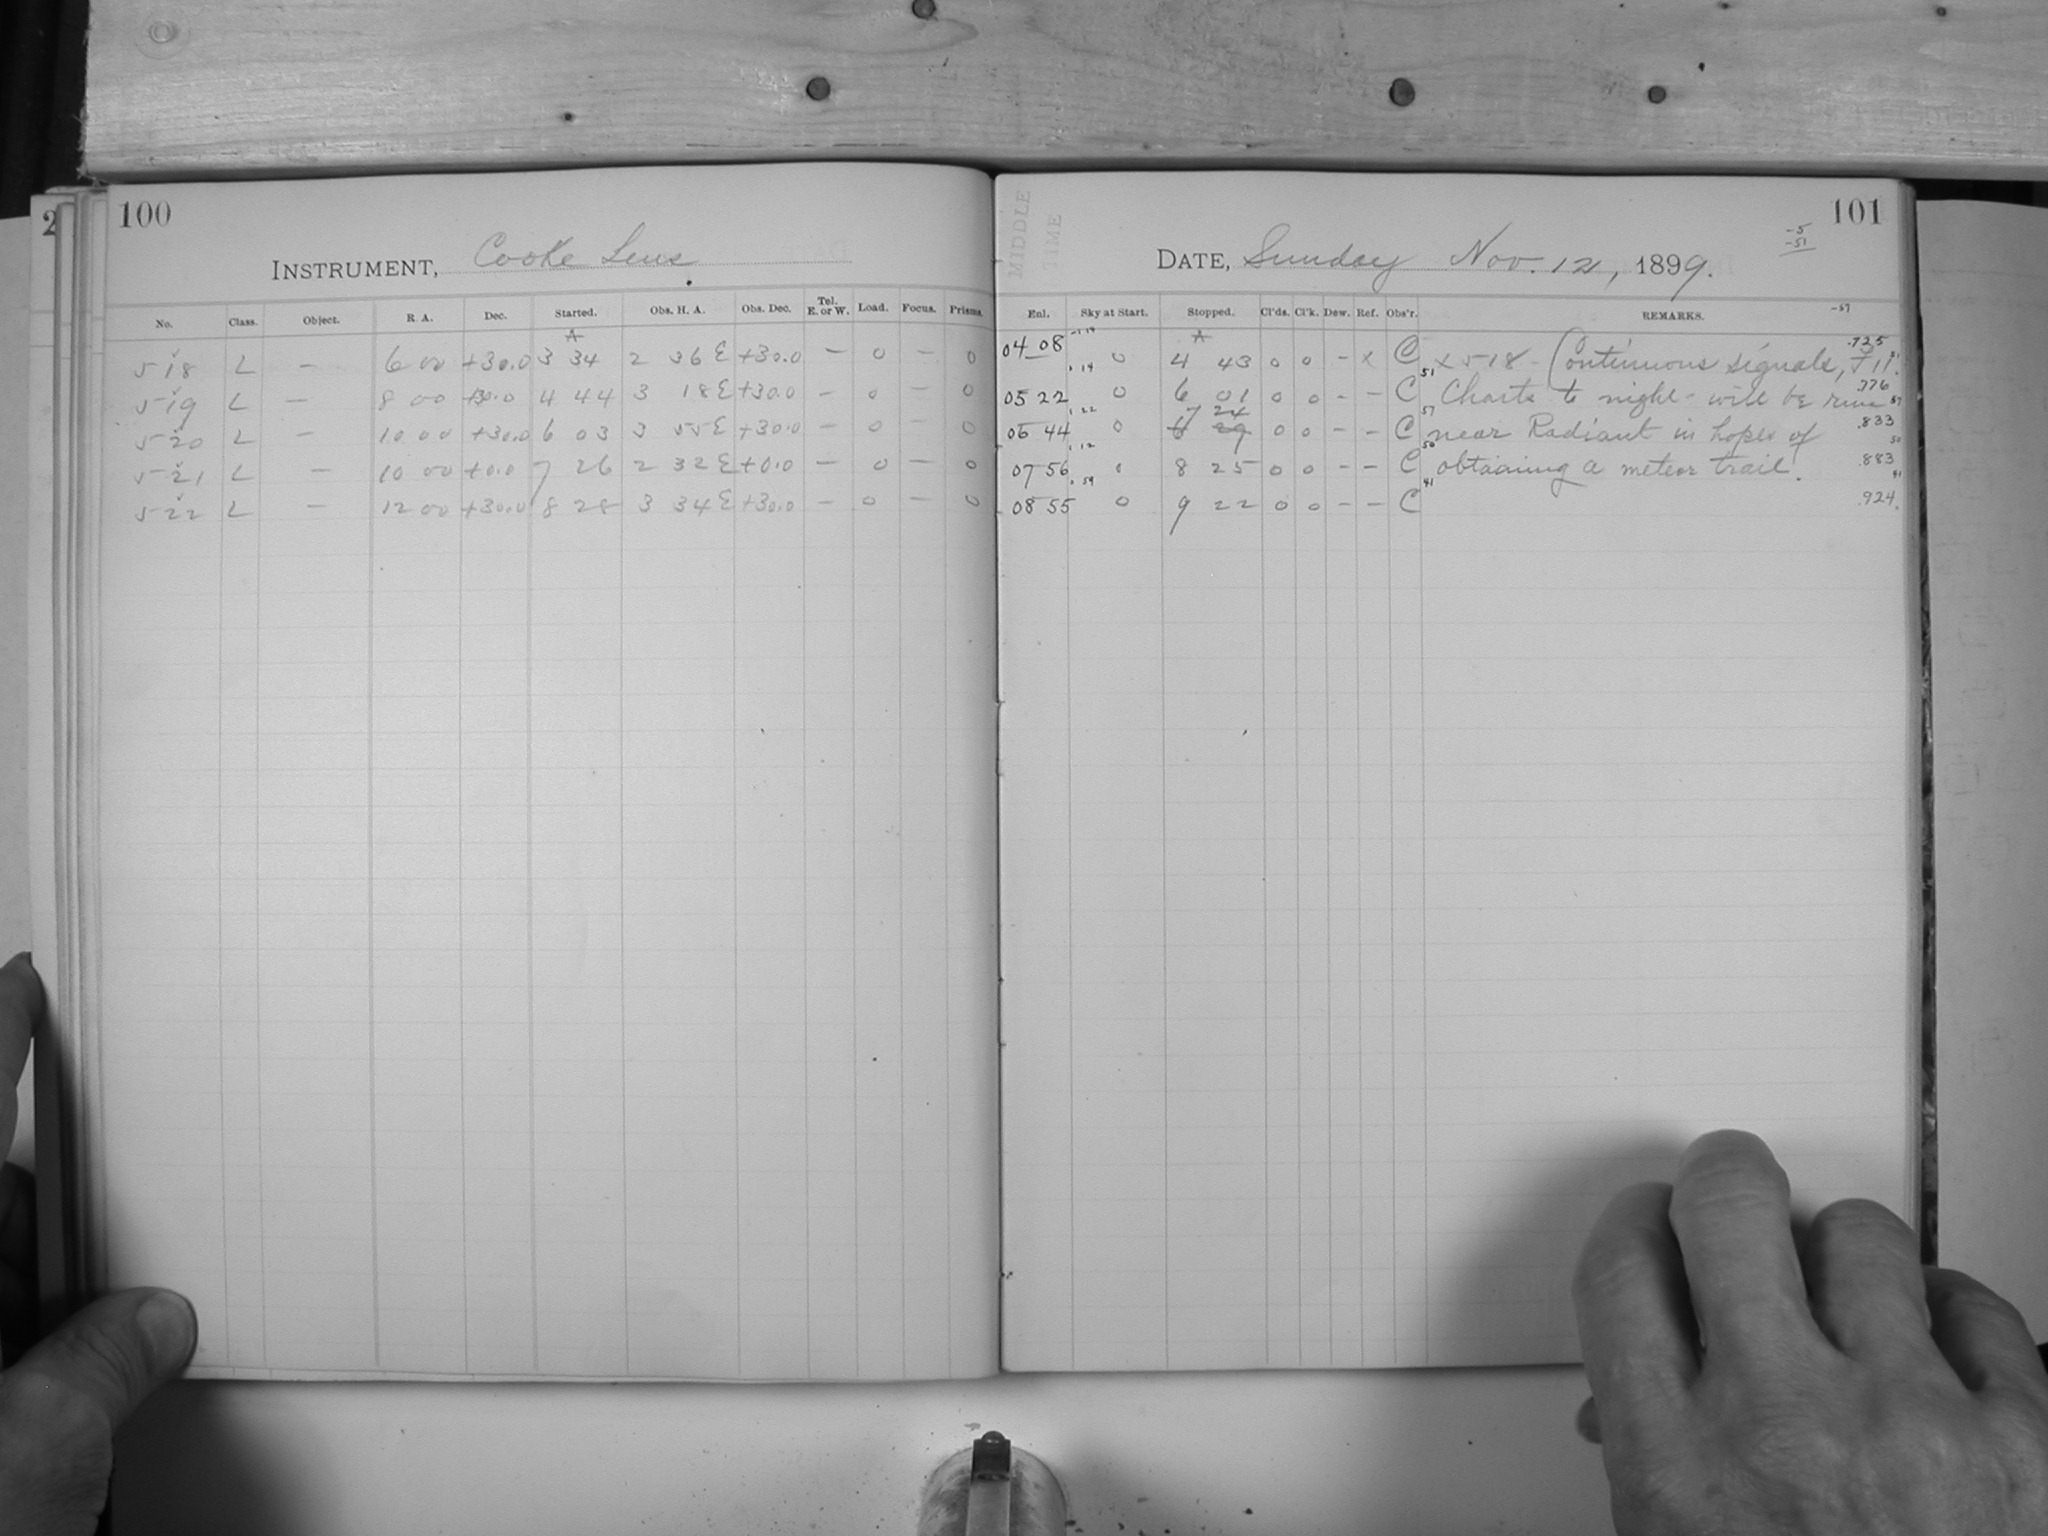 2
100
INSTRUMENT, Cooke Lens
No. Class. Object. R. A. Dec. Started. Obs. H. A. Obs. Dec. Tel. E. or W. Load. Focus. Prisms.
A
518 L — 6 00 +30.0 3 34 2 36 E +30.0 — 0 — 0
519 L — 8 00 +30.0 4 44 3 18 E +30.0 — 0 — 0
520 L — 10 00 +30.0 6 03 3 55 E +30.0 — 0 — 0
521 L — 10 00 +0.0 7 26 2 32 E +0.0 — 0 — 0
522 L — 12 00 +30.0 8 28 3 34 E +30.0 — 0 — 0
MIDDLE TIME
101
-5
-51
DATE, Sunday Nov. 12, 1899.
-57
Enl. Sky at Start. Stopped. Cl'ds. Cl'k. Dew. Ref. Obs'r. REMARKS.
A
04 08 0 4 43 0 0 - x C x 518 - Continuous signals, F 11. .725
1.14 51 51
05 22 0 6 01 0 0 - - C Charts to night - will be run .776
1.22 57 57
7 24
06 44 0 6 29 0 0 - - C near Radiant in hopes of .833
1.12 50 50
07 56 0 8 25 0 0 - - C obtaining a meteor trail. .883
.59 41 41
08 55 0 9 22 0 0 - - C .924